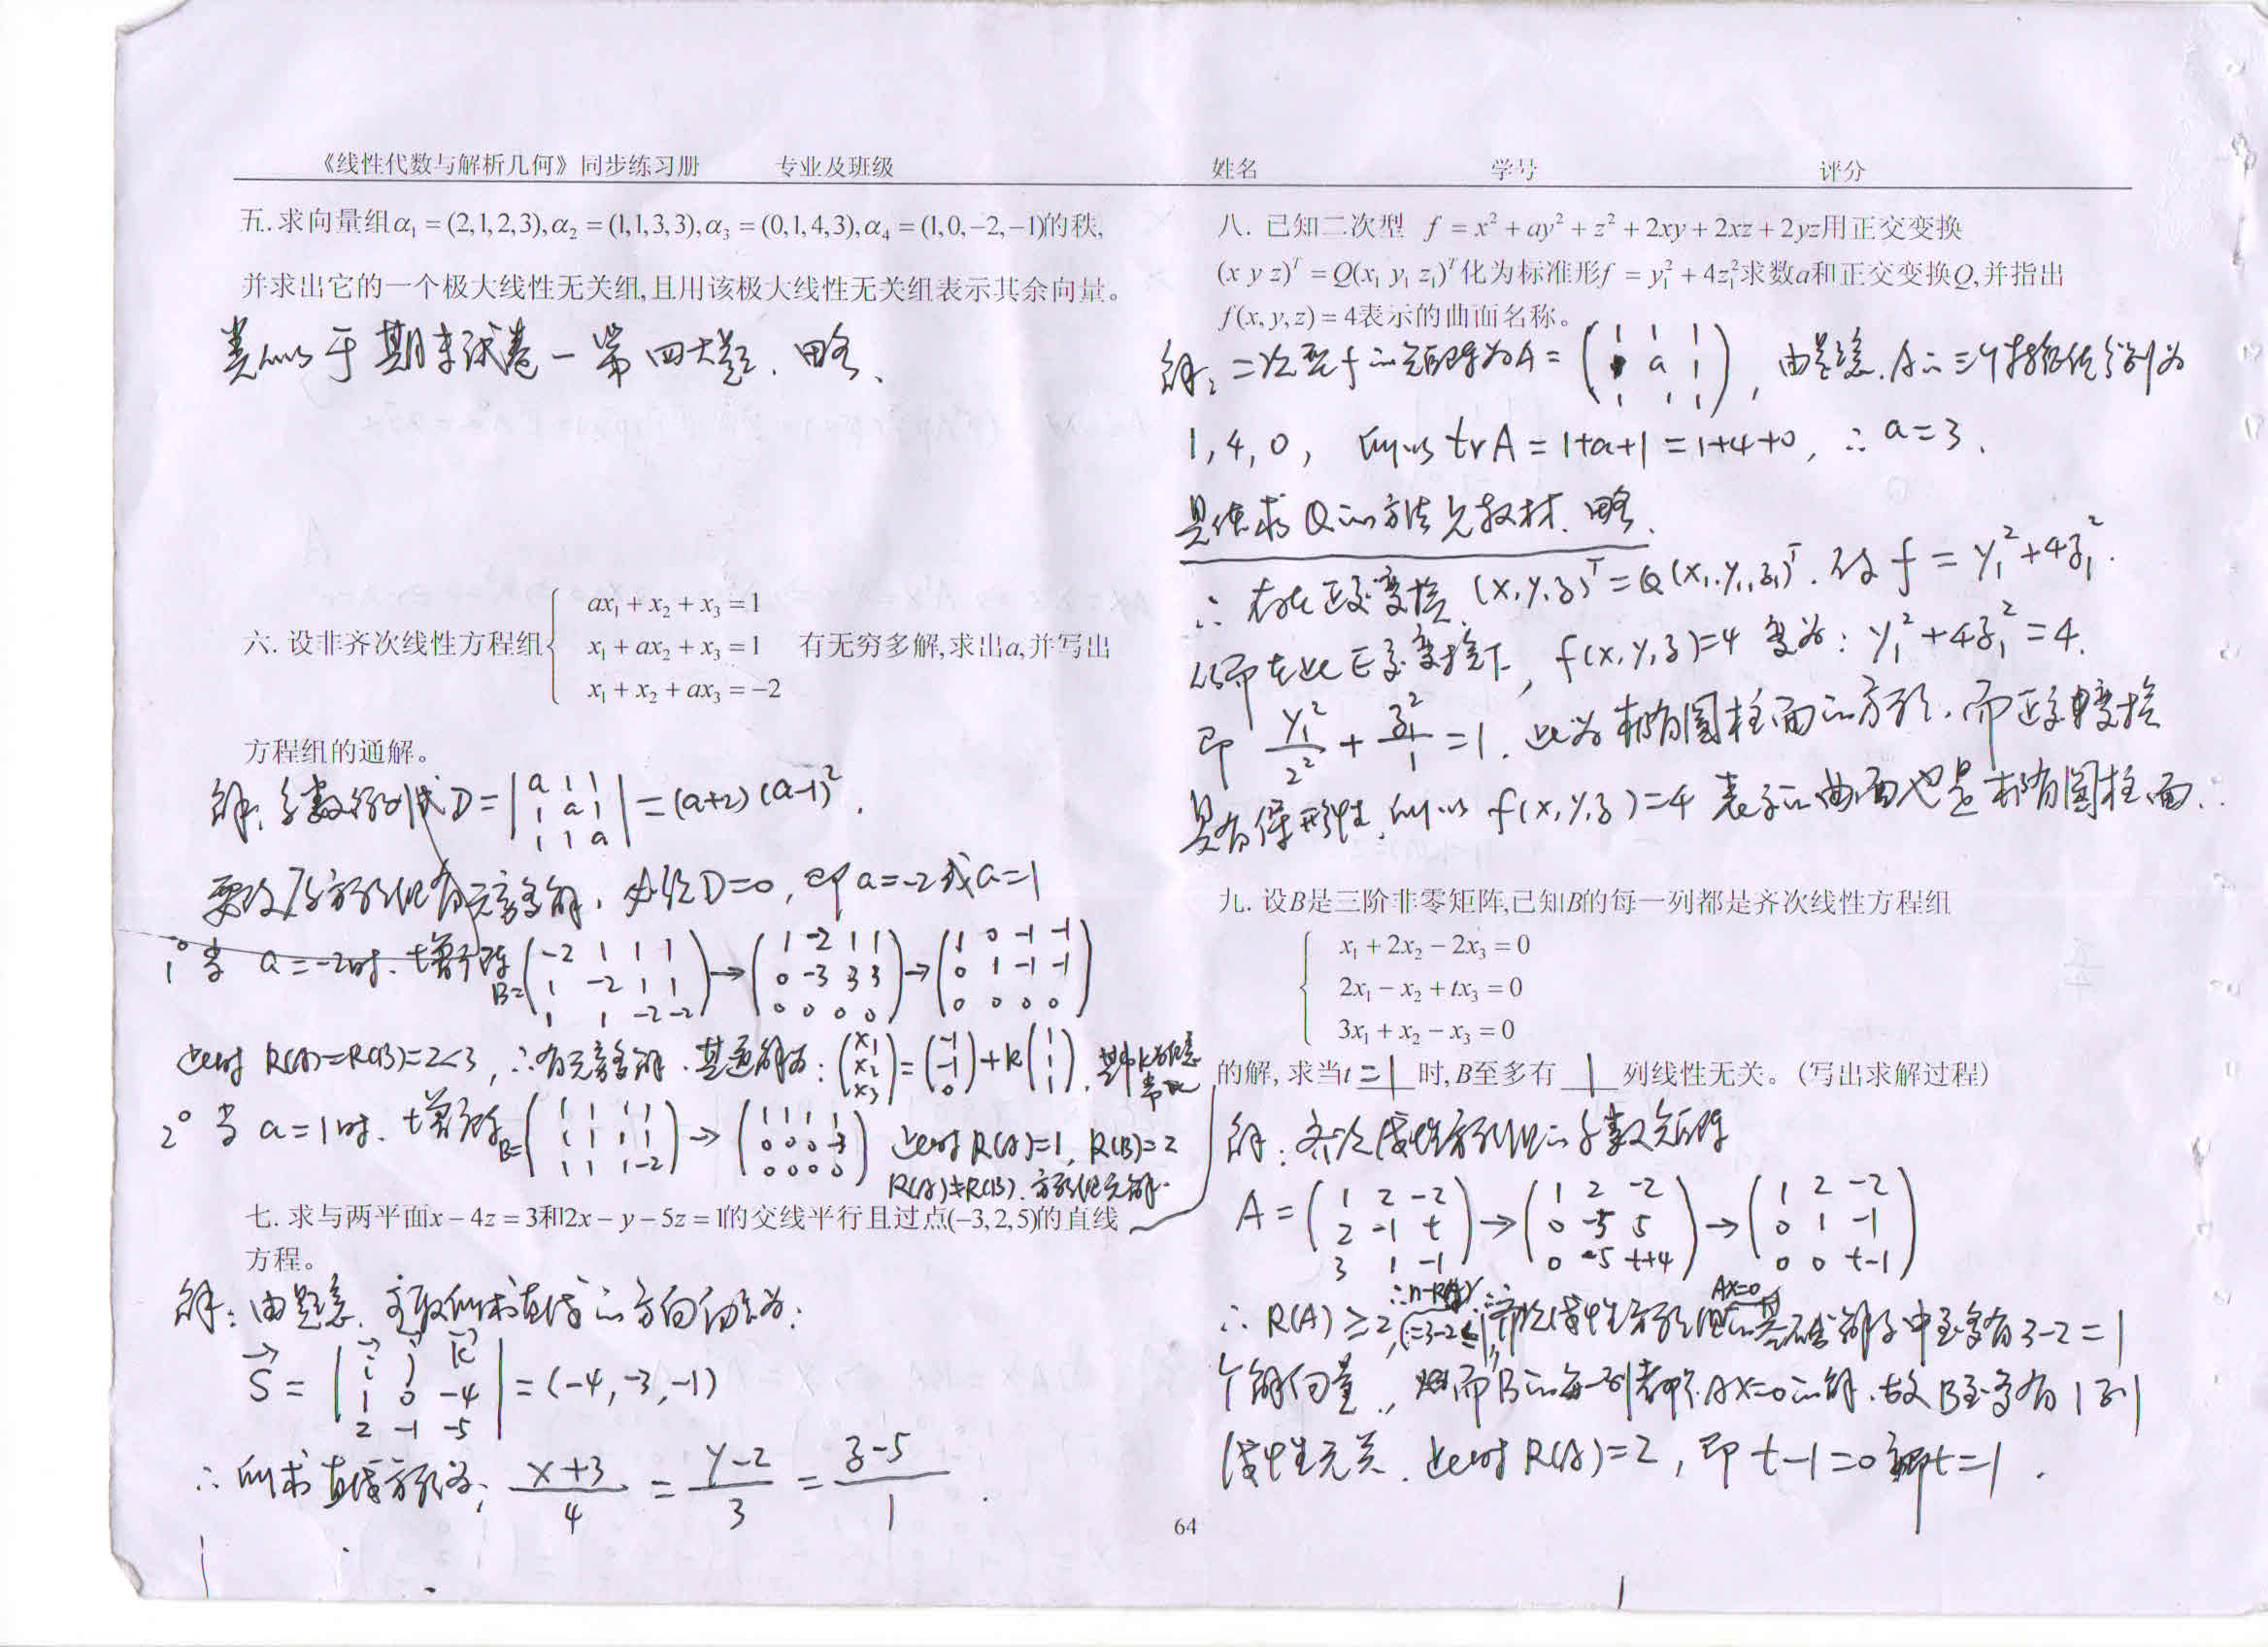 《线性代数与解析几何》同步练习册 专业及班级 姓名 学号 评分
五. 求向量组α₁ = (2,1,2,3), α₂ = (1,1,3,3), α₃ = (0,1,4,3), α₄ = (1,0,−2,−1)的秩,
并求出它的一个极大线性无关组,且用该极大线性无关组表示其余向量。
类似于期末试卷一第四大题. 略.
六. 设非齐次线性方程组 { ax₁ + x₂ + x₃ = 1
x₁ + ax₂ + x₃ = 1 有无穷多解,求出a,并写出
x₁ + x₂ + ax₃ = −2
方程组的通解。
解: 系数行列式 D = |a 1 1; 1 a 1; 1 1 a| = (a+2)(a-1)².
要使方程组有无穷多解, 必须D=0, 即 a=-2或a=1
1° 当 a=-2时. 增广阵 B= (-2 1 1 1; 1 -2 1 1; 1 1 -2 -2) → (1 -2 1 1; 0 -3 3 3; 0 0 0 0) → (1 0 -1 -1; 0 1 -1 -1; 0 0 0 0)
此时 R(A)=R(B)=2<3, ∴有无穷多解. 其通解为: (x₁; x₂; x₃) = (-1; -1; 0) + k(1; 1; 1), 其中k为任意常数
2° 当 a=1时. 增广阵 B= (1 1 1 1; 1 1 1 1; 1 1 1 -2) → (1 1 1 1; 0 0 0 -3; 0 0 0 0) 此时 R(A)=1, R(B)=2
R(A)≠R(B). 方程组无解.
七. 求与两平面x − 4z = 3和2x − y − 5z = 1的交线平行且过点(−3,2,5)的直线
方程。
解: 由题意, 可取所求直线的方向向量为:
S = |i j k; 1 0 -4; 2 -1 -5| = (-4, -3, -1)
∴ 所求直线方程为: (x+3)/4 = (y-2)/3 = (z-5)/1 .
八. 已知二次型 f = x² + ay² + z² + 2xy + 2xz + 2yz用正交变换
(x y z)ᵀ = Q(x₁ y₁ z₁)ᵀ化为标准形f = y₁² + 4z₁²求数a和正交变换Q,并指出
f(x, y, z) = 4表示的曲面名称。
解: 二次型f的矩阵为A = (1 1 1; 1 a 1; 1 1 1), 由题意. A的三个特征值分别为
1, 4, 0, 所以 trA = 1+a+1 = 1+4+0, ∴ a=3.
具体求Q的方法见教材. 略.
∴ 存在正交变换 (x,y,z)ᵀ = Q(x₁,y₁,z₁)ᵀ. 使 f = y₁²+4z₁².
从而在此正交变换下, f(x,y,z)=4 变为: y₁²+4z₁²=4.
即 y₁²/2² + z₁²/1 = 1. 此为椭圆柱面的方程. 而正交变换
具有保形性, 所以 f(x,y,z)=4 表示的曲面也是椭圆柱面.
九. 设B是三阶非零矩阵,已知B的每一列都是齐次线性方程组
{ x₁ + 2x₂ − 2x₃ = 0
2x₁ − x₂ + tx₃ = 0
3x₁ + x₂ − x₃ = 0
的解, 求当t =1 时, B至多有 1 列线性无关。(写出求解过程)
解: 齐次线性方程组的系数矩阵
A = (1 2 -2; 2 -1 t; 3 1 -1) → (1 2 -2; 0 -5 5; 0 -5 t+4) → (1 2 -2; 0 1 -1; 0 0 t-1)
∴ R(A) ≥ 2, 齐次线性方程组 AX=0 的基础解系中至多有3-2=1
个解向量, 而B的每一列都是AX=0的解, 故B至多有1列
线性无关. 此时 R(A)=2, 即 t-1=0 即t=1.
64